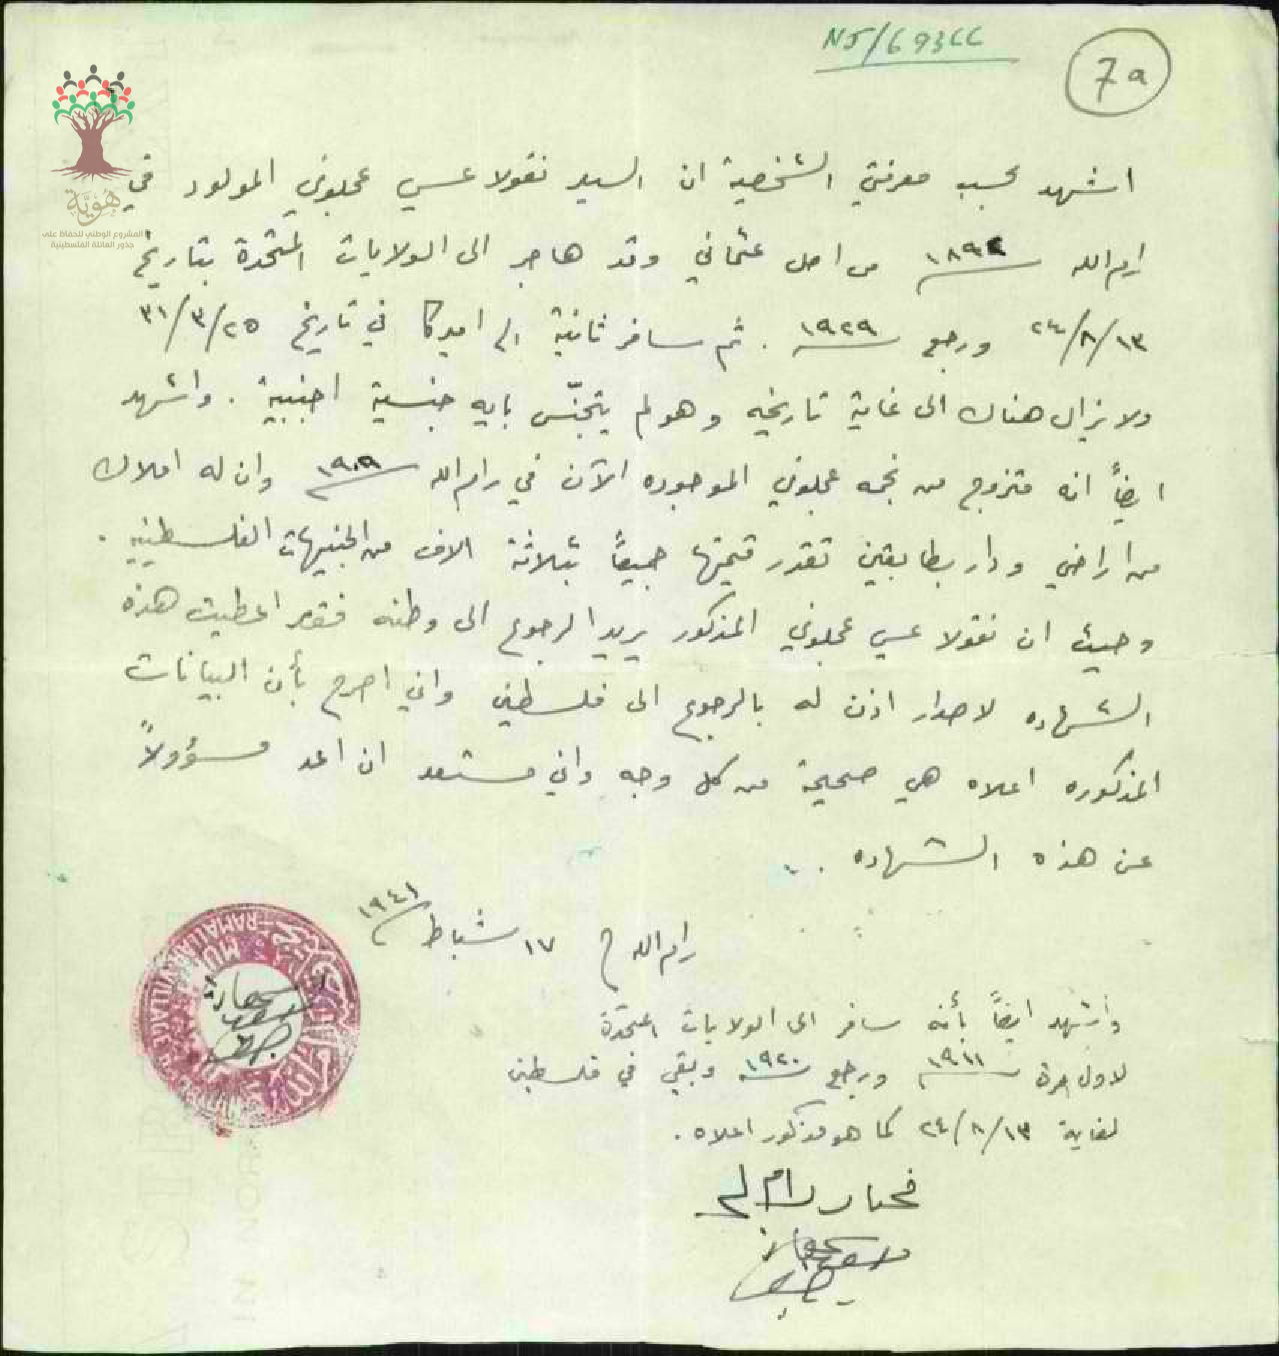 NJ/69366
7a
هوية
المشروع الوطني للحفاظ على
جذور العائلة الفلسطينية
اشهد بحسب معرفتي الشخصية ان السيد نقولا عيسى عجلوني المولود في
رام الله سنة ١٨٩٢ من اصل عثماني وقد هاجر الى الولايات المتحدة بتاريخ
١٣/٨/٢٤ ورجع سنة ١٩٢٩ . ثم سافر ثانية الى اميركا في تاريخ ٢٥/٣/٣١
ولا يزال هناك الى غاية تاريخه وهو لم يتجنّس بايه جنسية اجنبية . واشهد
ايضاً انه متزوج من نجمه عجلوني الموجوده الآن في رام الله سنة ١٩٠٩ وان له املاك
من اراضي ودار بطابقين تقدر قيمتها جميعاً بثلاثة الاف من الجنيهات الفلسطينيه .
وحيث ان نقولا عيسى عجلوني المذكور يريد الرجوع الى وطنه فقد اعطيت هذه
الشهاده لاصدار اذن له بالرجوع الى فلسطين واني اصرح بأن البيانات
المذكوره اعلاه هي صحيحة من كل وجه واني مستعد ان اعد مسؤولاً
عن هذه الشهاده .
رام الله في ١٧ شباط سنة ١٩٤١
واشهد ايضاً بأنه سافر الى الولايات المتحدة
لاول مرة سنة ١٩١١ ورجع سنة ١٩٢٠ وبقي في فلسطين
لغاية ١٣/٨/٢٤ كما هو مذكور اعلاه .
مختار رام الله
RAMALLAH VILLAGE